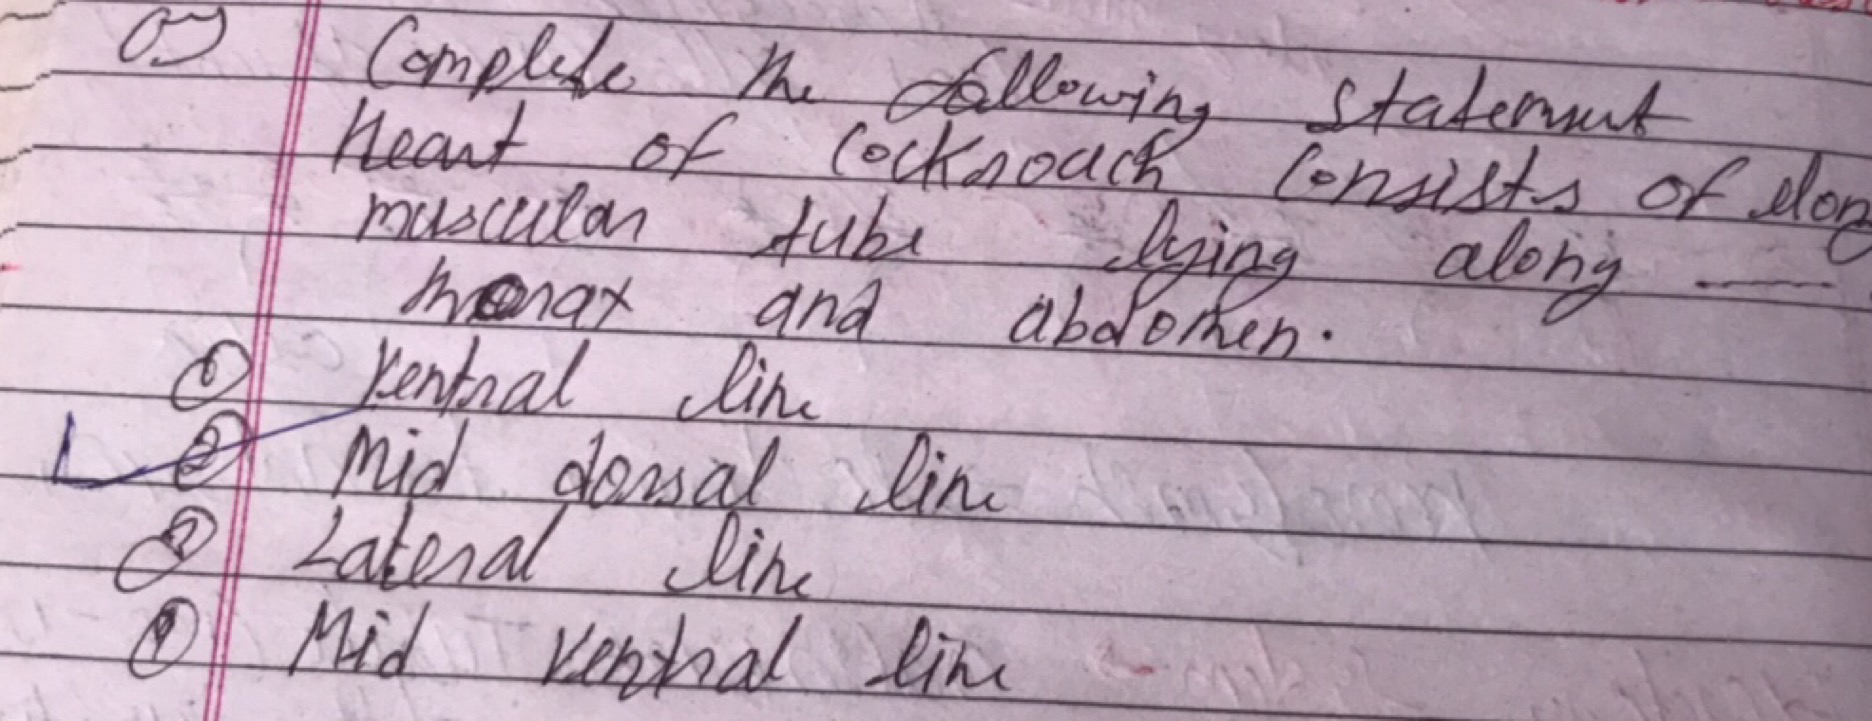 Complete the following statement
Heart of Cockroach Consists of elong
muscular tube lying along ----
thorax and abdomen.
① Ventral line
② Mid dorsal line
③ Lateral line
④ Mid Ventral line